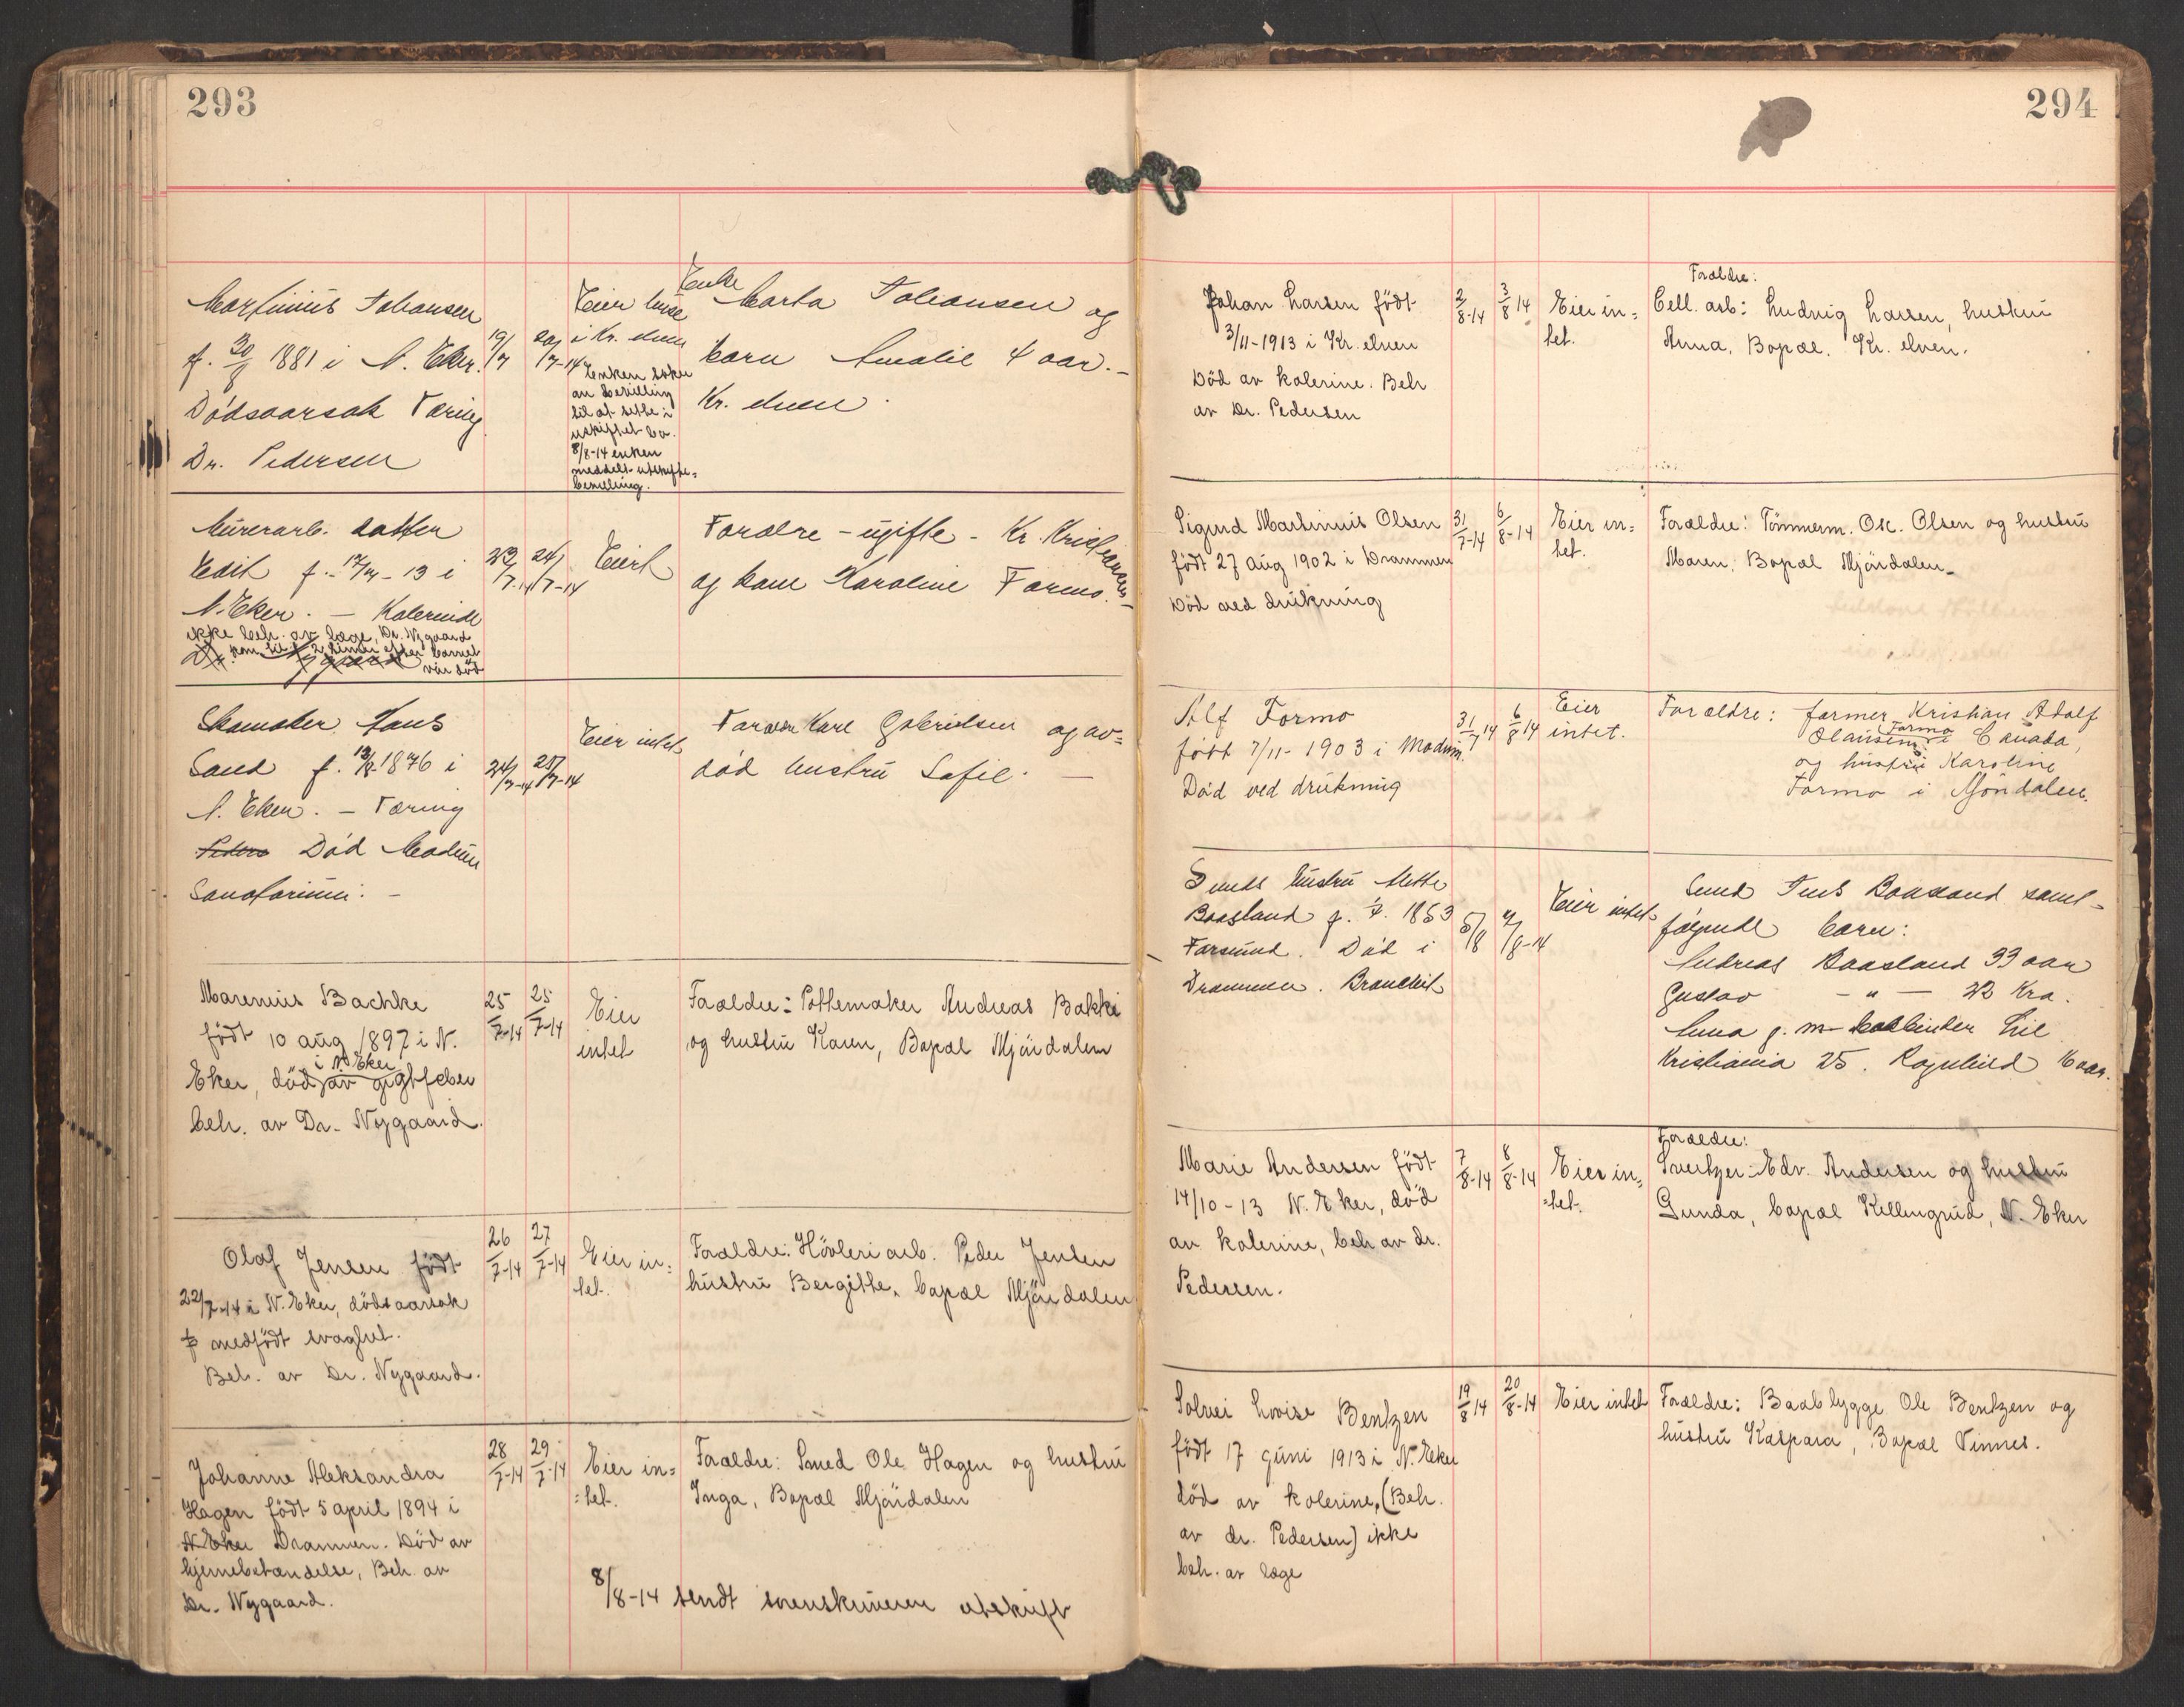 293
Martinius Johansen
f. 30/8 1881 i N. Eker.
Dödsaarsak Tæring
Dr. Pedersen
19/7
20/7-14
Eier huse
i Kr. elven
Enken søker
om bevilling
til at sitte i
uskiftet bo.
8/8-14 enken
meddelt uskifte-
bevilling.
Enke
Marta Johansen og
barn Amalie 4 aar. -
Kr. elven.
Murerarb. datter
Edit f. 17/4 - 13 i
N. Eker. - Kolerine
ikke beh. av læge, Dr. Nygaard
kom til 2 timer efter barnet
var död
Dr. Nygaard
23/7-14
24/7-14
Eier
Forældre - ugifte - Kr. Kristiansen
og Karoline Formo. -
Skomaker Hans
Sand f. 13/8 1876 i
N. Eker. - Tæring
Peders Död Modum
Sanatorium. -
24/7-14
25/7-14
Eier intet
Karl Gabrielsen og av=
död hustru Sofie. -
Marenius Bachke
födt 10 aug 1897 i N.
Eker, död i N. Eker av gigtfeber
beh. av Dr. Nygaard.
25/7-14
25/7-14
Eier
intet
Forældre: Pottemaker Andreas Bakke
og hustru Karen, Bopæl Mjöndalen
Olaf Jensen födt
22/7-14 i N. Eker, dödsaarsak
medfödt svaghet.
Beh. av Dr. Nygaard.
26/7-14
27/7-14
Eier in=
tet.
Forældre: Hövleri arb. Peder Jensen
hustru Bergitte, bopæl Mjöndalen
Johanne Aleksandra
Hagen födt 5 april 1894 i
N. Eker Drammen. Död av
hjernebetændelse, Beh. av
Dr. Nygaard.
28/7-14
29/7-14
Eier in=
=tet.
Forældre: Smed Ole Hagen og hustru
Inga, Bopæl Mjöndalen
8/8-14 sendt sorenskriveren utskrift
294
Johan Larsen födt
3/11-1913 i Kr. elven
Död av kolerine. Beh
av Dr. Pedersen
2/8-14
3/8 14
Eier in=
tet.
Forældre:
Cell. arb: Ludvig Larsen, hustru
Anna, Bopæl. Kr. elven.
Sigurd Martinius Olsen
födt 27 aug 1902 i Drammen
Död ved drukning
31/7-14
6/8-14
Eier in=
tet.
Forældre: Tömmerm. Osc. Olsen og hustru
Maren, Bopæl Mjöndalen.
Alf Formo
födt 7/11-1903 i Modum.
Död ved drukning
31/7 14
6/8 14
Eier
intet.
Forældre: farmer Kristian Adolf
Olausen Formo i Canada,
og hustru Karoline
Formo i Mjöndalen.
Smeds hustru Mette
Baasland f. 1853
Farsund. Död i
Drammen.
5/8
Eier intet
Smed Baasland samt
følgende barn:
Andreas Baasland 33 aar
Gustav - " - 22 Kra.
Anna g. m. Lie
Kristiania 25. Ragnhild 16 aar.
Marie Andersen födt
14/10-13 N. Eker, död
av kolerine, beh av dr.
Pedersen.
7/8-14
8/8-14
Eier in=
=tet.
Forældre:
Sveitzer Edv. Andersen og hustru
Gunda, bopæl Killingrud, N. Eker
Solvei Lovise Bentzen
födt 17 juni 1913 i N. Eker
död av kolerine, (Beh.
av dr. Pedersen) ikke
beh. av læge
19/8 14
20/8-14
Eier intet
Forældre: Baatbygge Ole Bentzen og
hustru Kaspara, Bopæl Vinnes.